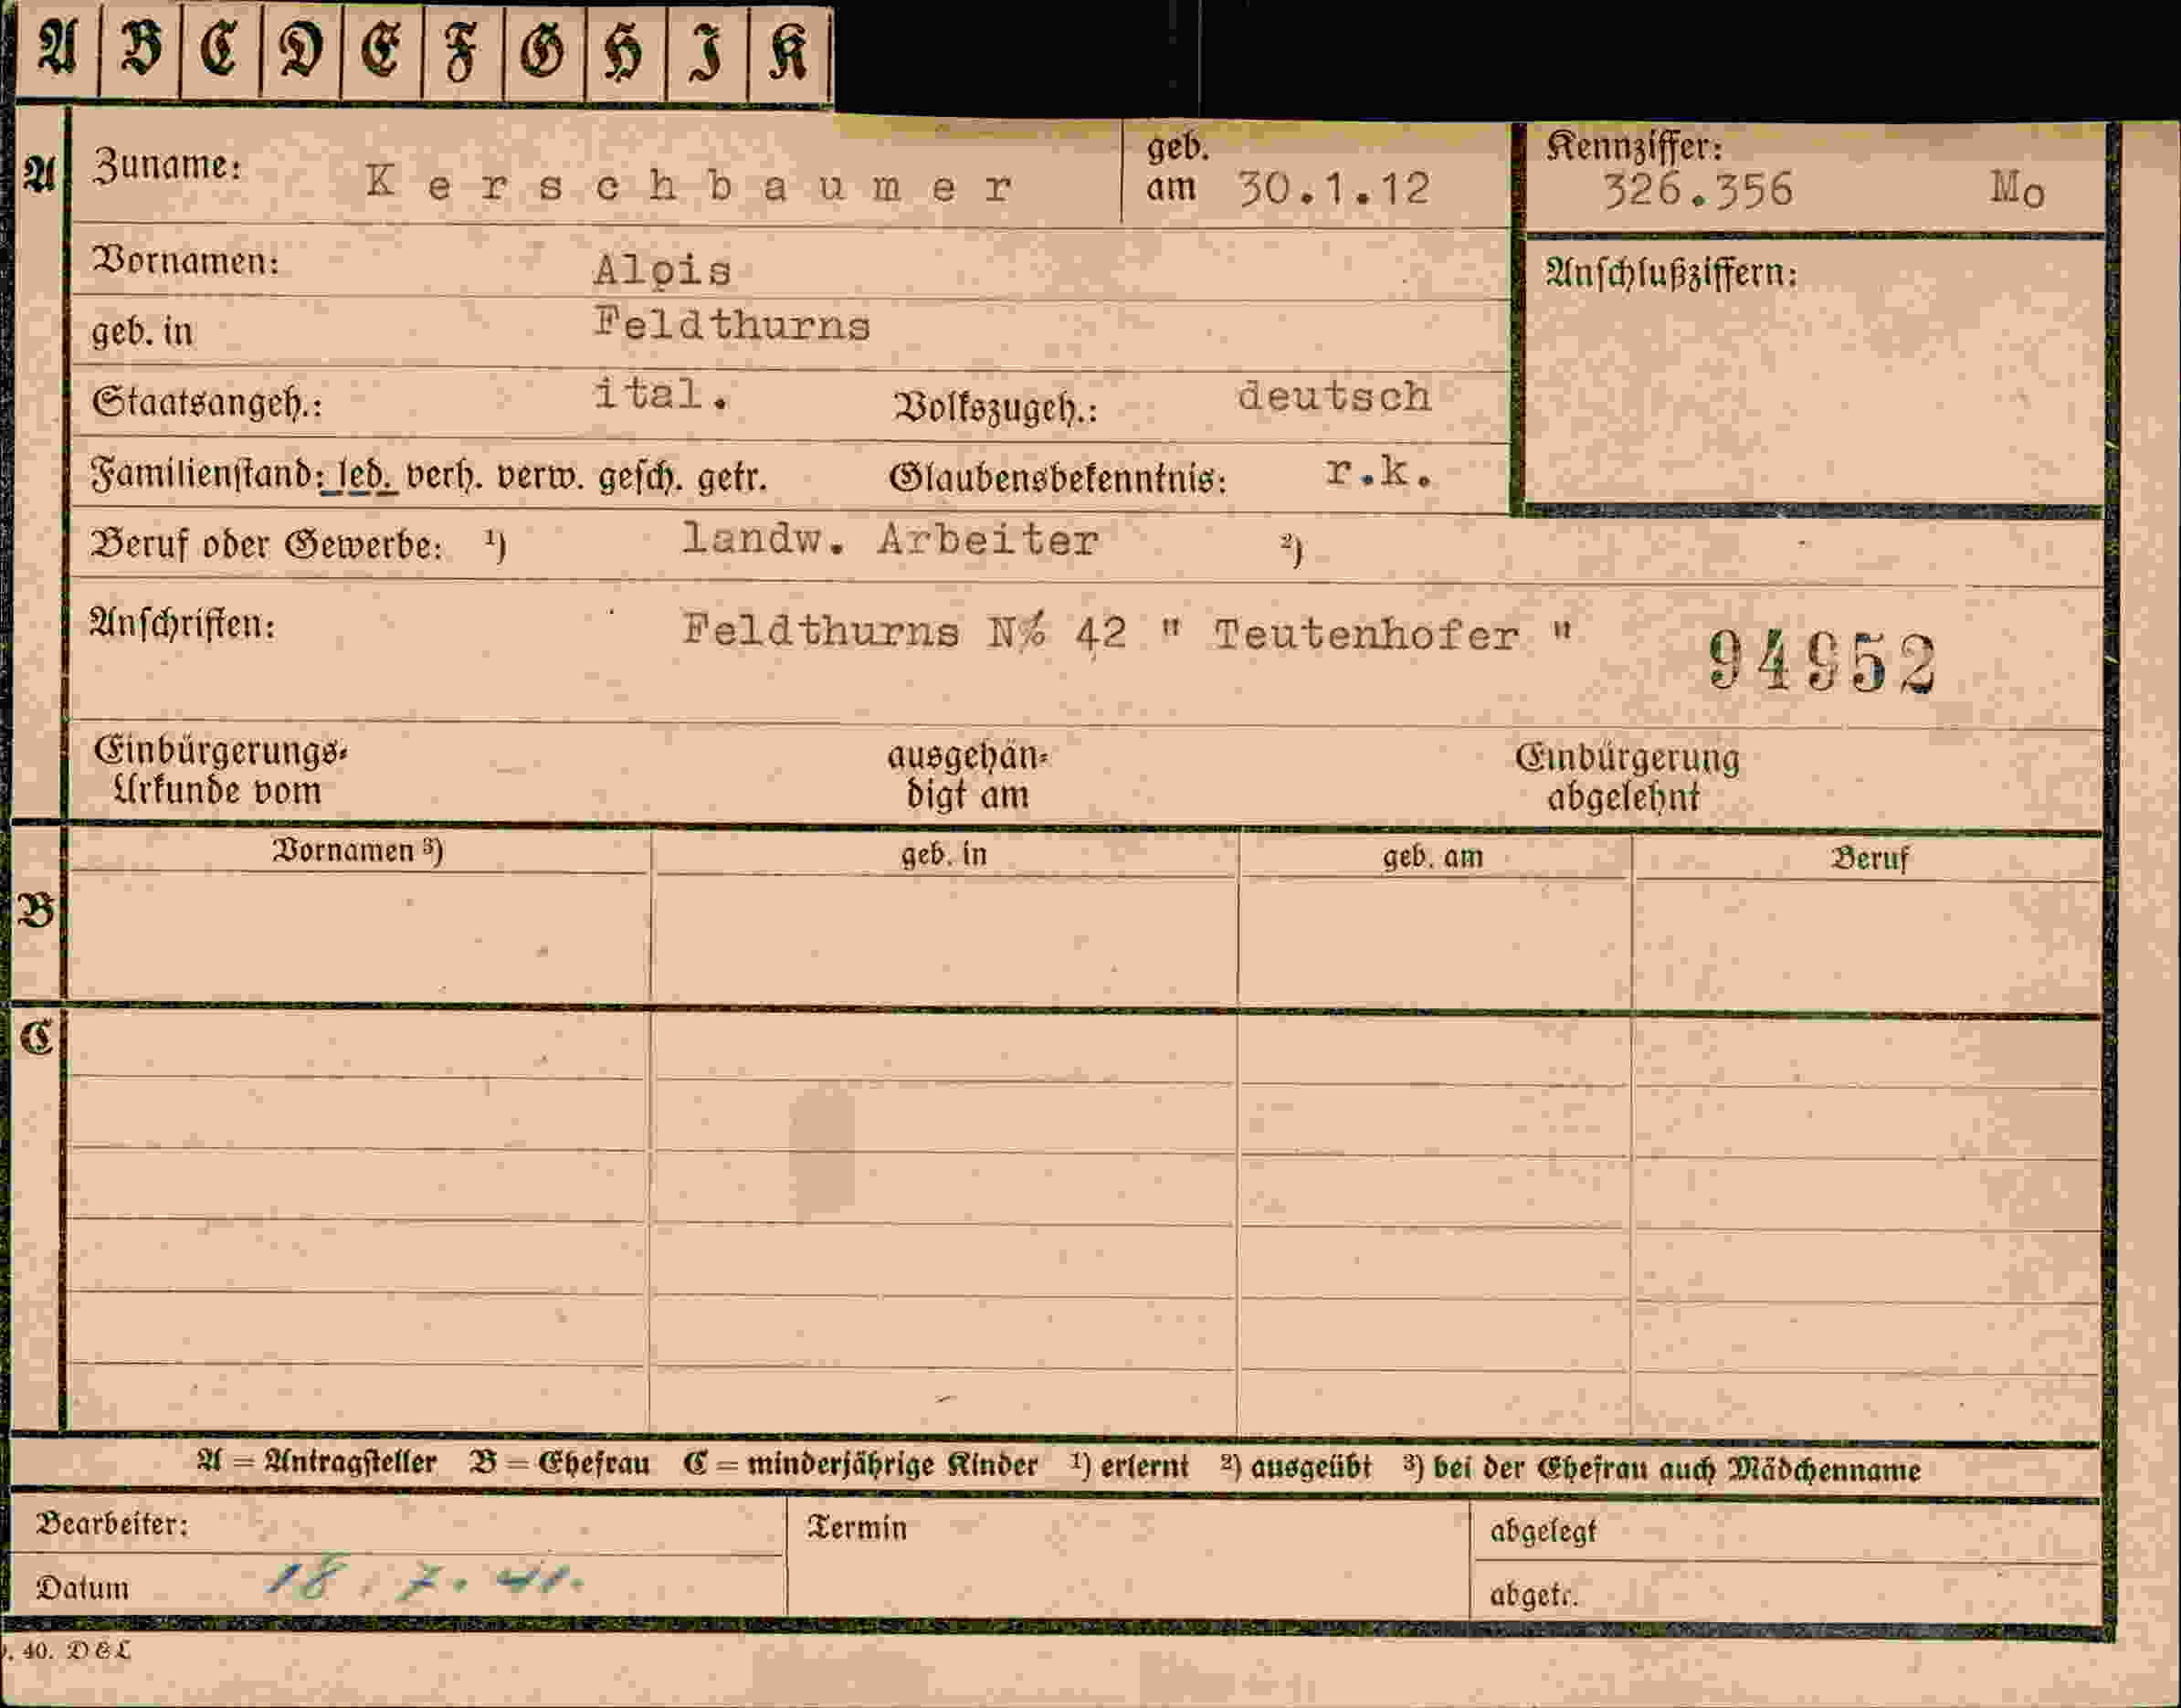 A B C D E F G H I K
A Zuname: Kerschbaumer geb. am 30.1.12 Kennziffer: 326.356 Mo
Vornamen: Alois Anschlußziffern:
geb. in Feldthurns
Staatsangeh.: ital. Volkszugeh.: deutsch
Familienstand: led. verh. verw. gesch. getr. Glaubensbekenntnis: r.k.
Beruf oder Gewerbe: ¹) landw. Arbeiter ²)
Anschriften: Feldthurns N% 42 " Teutenhofer " 94952
Einbürgerungs- ausgehän- Einbürgerung
Urkunde vom digt am abgelehnt
Vornamen ³) geb. in geb. am Beruf
B
C
A = Antragsteller B = Ehefrau C = minderjährige Kinder ¹) erlernt ²) ausgeübt ³) bei der Ehefrau auch Mädchenname
Bearbeiter: Termin abgelegt
Datum 18.7.41. abgetr.
40. D&L